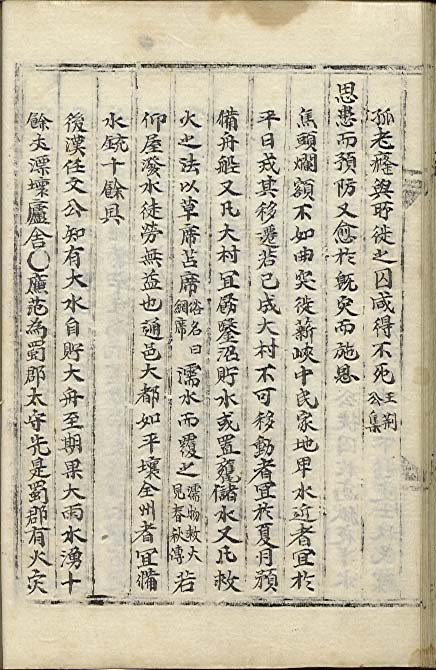 孤老癃與所徙之囚咸得不死王荊公集
思患而預防又愈於旣灾而施恩
焦頭爛額不如曲突徙薪峽中民家地卑水近者宜於
平日戒其移遷若已成大村不可移動者宜於夏月預
備舟船又凡大村宜鑿沼貯水或置甕儲水又凡救
火之法以草席苫席俗名曰網席濡水而覆之濡物救火見春秋傳若
仰屋潑水徒勞無益也通邑大都如平壤全州者宜備
水銃十餘具
後漢任文公知有大水自貯大舟至期果大雨水湧十
餘丈漂壞廬舍〇廉范為蜀郡太守先是蜀郡有火灾